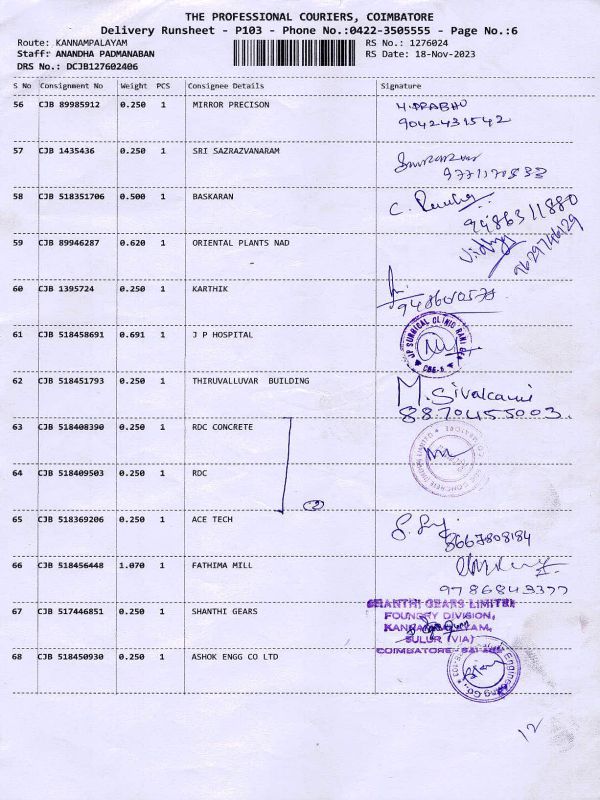 THE PROFESSIONAL COURIERS, COIMBATORE
Delivery Runsheet - P103 - Phone No.:0422-3505555 - Page No.:6
Route: KANNAMPALAYAM
RS No.: 1276024
Staff: ANANDHA PADMANABAN
RS Date: 18-Nov-2023
DRS No.: DCJB127602406
S No Consignment No Weight PCS Consignee Details Signature
56 CJB 89985912 0.250 1 MIRROR PRECISON H.PRABHU
9042431542
57 CJB 1435436 0.250 1 SRI SAZRAZVANARAM
58 CJB 518351706 0.500 1 BASKARAN C.
9486311880
59 CJB 89946287 0.620 1 ORIENTAL PLANTS NAD Vidhya
9629746129
60 CJB 1395724 0.250 1 KARTHIK
61 CJB 518458691 0.691 1 J P HOSPITAL J.P SURGICAL CLINIC
CBE-5
62 CJB 518451793 0.250 1 THIRUVALLUVAR BUILDING M. Sivakami
8870455003.
63 CJB 518408390 0.250 1 RDC CONCRETE
64 CJB 518409503 0.250 1 RDC
2
65 CJB 518369206 0.250 1 ACE TECH
8667808184
66 CJB 518456448 1.070 1 FATHIMA MILL
9786843377
67 CJB 517446851 0.250 1 SHANTHI GEARS SHANTHI GEARS LIMITED
FOUNDRY DIVISION,
SULUR (VIA)
COIMBATORE
68 CJB 518450930 0.250 1 ASHOK ENGG CO LTD
12